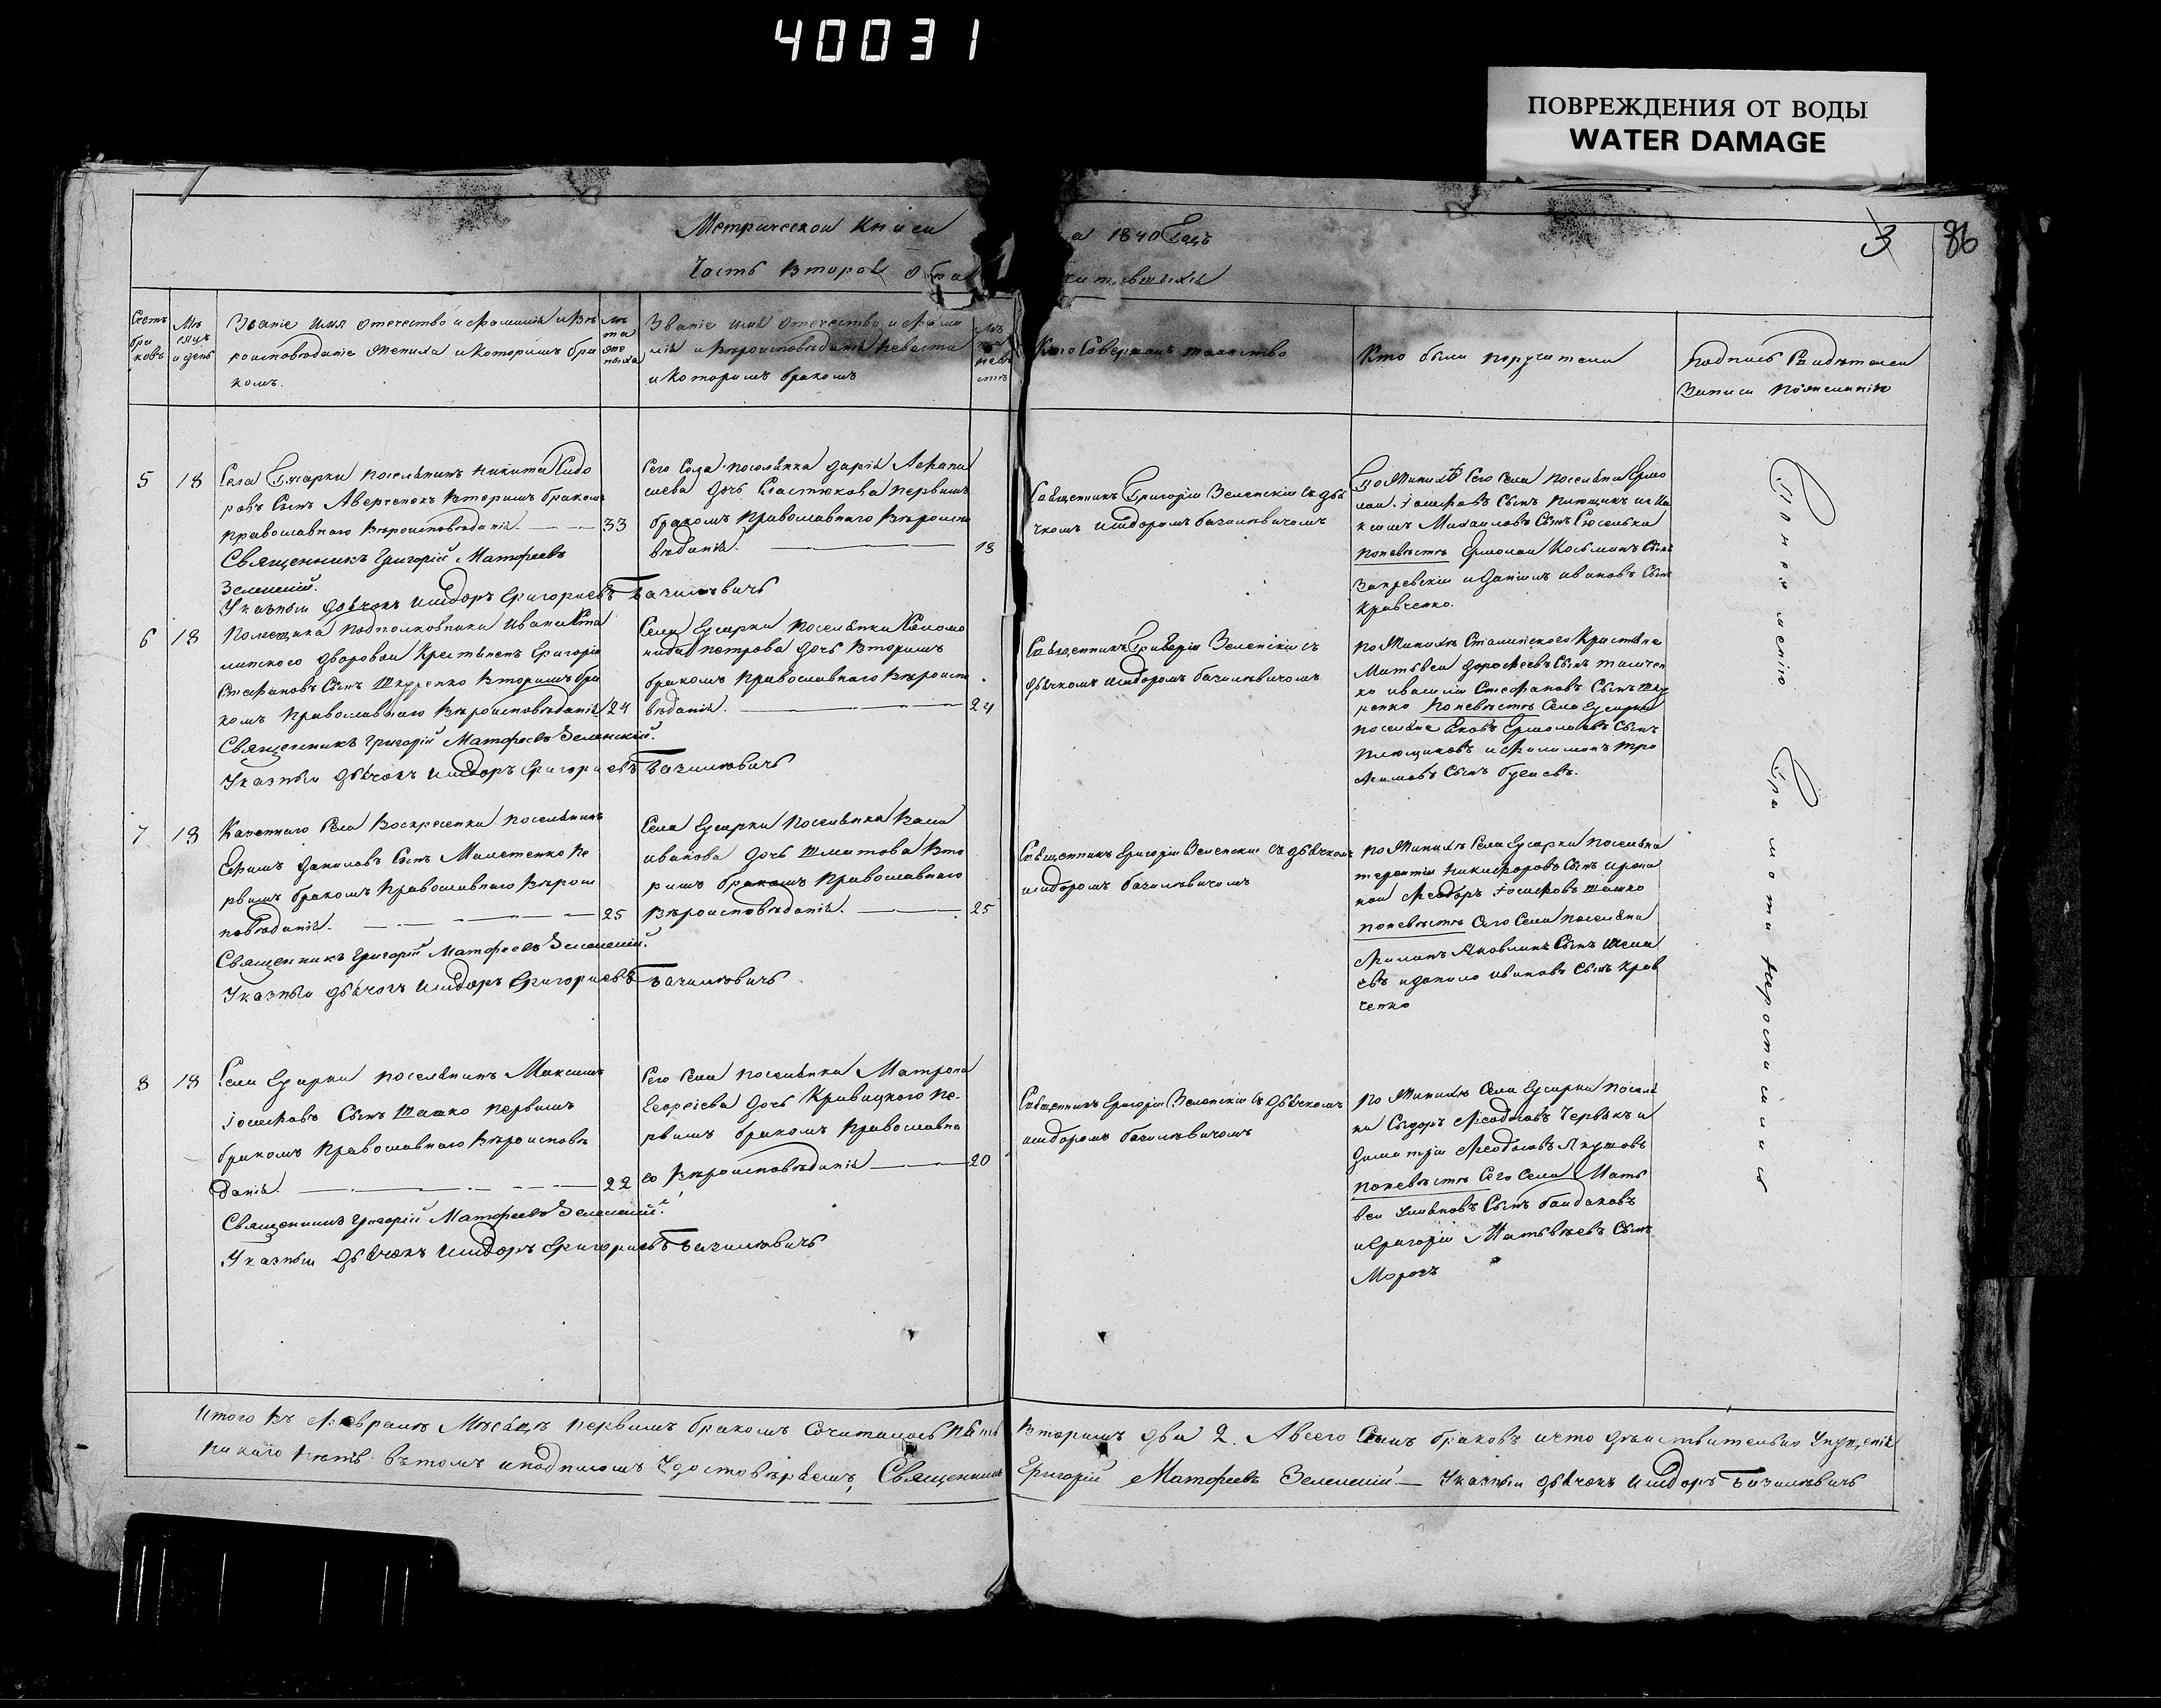 40031
ПОВРЕЖДЕНИЯ ОТ ВОДЫ
WATER DAMAGE
Метрической книги
а 1840 Годъ
3
86
Часть вторая о бра
Счетъ браковъ
Мѣсяцъ и день
Званіе имя отечество и фамилія и вѣ
роисповѣданіе жениха и которимъ бра
комъ.
Лѣта жениха
Званіе имя отечество и фами
лія и вѣроисповѣданіе невести
и которимъ бракомъ
Кто совершалъ таинство
Кто были поручители
Подпись свидѣтелей
записи по желанію
5
18
Села Гусарки поселянинъ Никита Сидо
ровъ сынъ Аверченокъ вторимъ бракомъ
православнаго вѣроисповѣданія. 33
Священникъ Григорій Матфеевъ
Зеленскій.
Указный дьячокъ Исидоръ Григориевъ Базилевичъ
Сего села поселянка Дарія Афана
сиева дочь Сластюкова первимъ
бракомъ православнаго вѣроиспо
вѣданія. 18
Священникъ Григорій Зеленскій съ дья
чкомъ Исидоромъ Базилевичомъ
По жинихѣ сего села поселяни Ермо
лай Іосифовъ сынъ и Ма
ксимъ Михайловъ сынъ
по невѣстѣ Ермолай Косьминъ сынъ
Закревскій и Даніилъ Ивановъ сынъ
Кравченко.
6
18
Помещика подполковника Ивана
дворовой крестьянинъ Григорій
Стефановъ сынъ Шкуренко вторимъ бра
комъ православнаго вѣроисповѣданія 24
Священникъ Григорій Матфеевъ Зеленскій.
Указный дьячокъ Исидоръ Григориевъ Базилевичъ
Села Гусарки поселянка Соломо
нида Петрова дочь вторимъ
бракомъ православнаго вѣроиспо
вѣданія. 24
Священникъ Григорій Зеленскій съ
дьячкомъ Исидоромъ Базилевичомъ
по жинихѣ крестьяне
Матвѣй Дорофеевъ сынъ
ко и Василій Стефановъ сынъ Шку
ренко по невѣстѣ села Гусарки
поселяне Яковъ Ермолаевъ сынъ
и Филимонъ Тро
фимовъ сынъ
7
18
Казеннаго села Воскресенки поселянинъ
Ефимъ Даниловъ сынъ пе
рвимъ бракомъ православнаго вѣрои
повѣданія. 25
Священникъ Григорій Матфеевъ Зеленскій.
Указный дьячокъ Исидоръ Григориевъ Базилевичъ
Села Гусарки поселянка Васи
Иванова дочь вто
римъ бракомъ православнаго
вѣроисповѣданія. 25
Священникъ Григорій Зеленскій съ дьячкомъ
Исидоромъ Базилевичомъ
по жинихѣ села Гусарки поселяни
Терентій Никифоровъ сынъ
Феодоръ Іосифовъ Шашко
по невѣстѣ сего села поселяни
Филипъ Яковлинъ сынъ
евъ и Данило Ивановъ сынъ Крав
ченко
8
18
Села Гусарки поселянинъ Максимъ
Іосифовъ сынъ Шашко первимъ
бракомъ православнаго вѣроисповѣ
данія. 22
Священникъ Григорій Матфеевъ Зеленскій.
Указный дьячокъ Исидоръ Григориевъ Базилевичъ
Сего села поселянка Матрона
Георгіева дочь Кривицкого пе-
рвимъ бракомъ православна
го вѣроисповѣданія 20
Священникъ Григорій Зеленскій съ дьячкомъ
Исидоромъ Базилевичомъ
по жинихѣ села Гусарки посел
ни Сидоръ Феодосовъ Червякъ и
Димитрій Феодосовъ
по невѣстѣ сего села Мать
вей сынъ
и Григорій Матьвѣевъ сынъ
Морозъ
По неимѣнію грамоти неросписались
Итого въ Февралѣ мѣсяцѣ первимъ бракомъ сочиталось пять вторимъ два 2. А всего семь браковъ и что дѣйствительно упущенія
никаго нѣтъ. въ томъ и подписомъ удостовѣряемъ, Священникъ Григорій Матфеевъ Зеленскій — Указный дьячокъ Исидоръ Базилевичъ